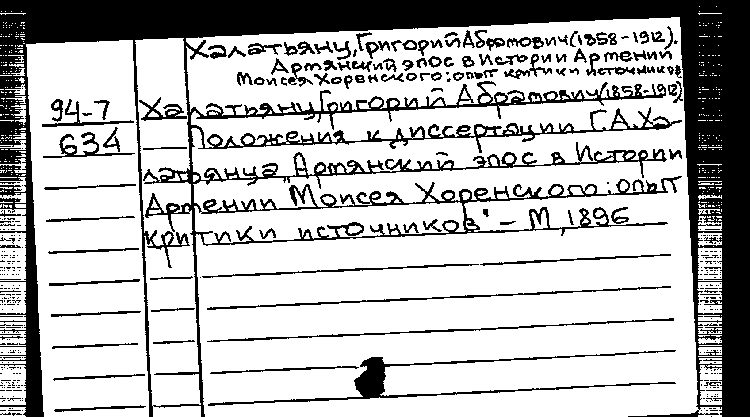 Халатьянц, Григорий Абрамович (1858-1912).
Армянский эпос в Истории Армении
Моисея Хоренского: опыт критики источников
94-7 Халатьянц, Григорий Абрамович (1858-1912)
634 Положения к диссертации Г.А.Ха-
латьянца „Армянский эпос в Истории
Армении Моисея Хоренского: опыт
критики источников". - М., 1896